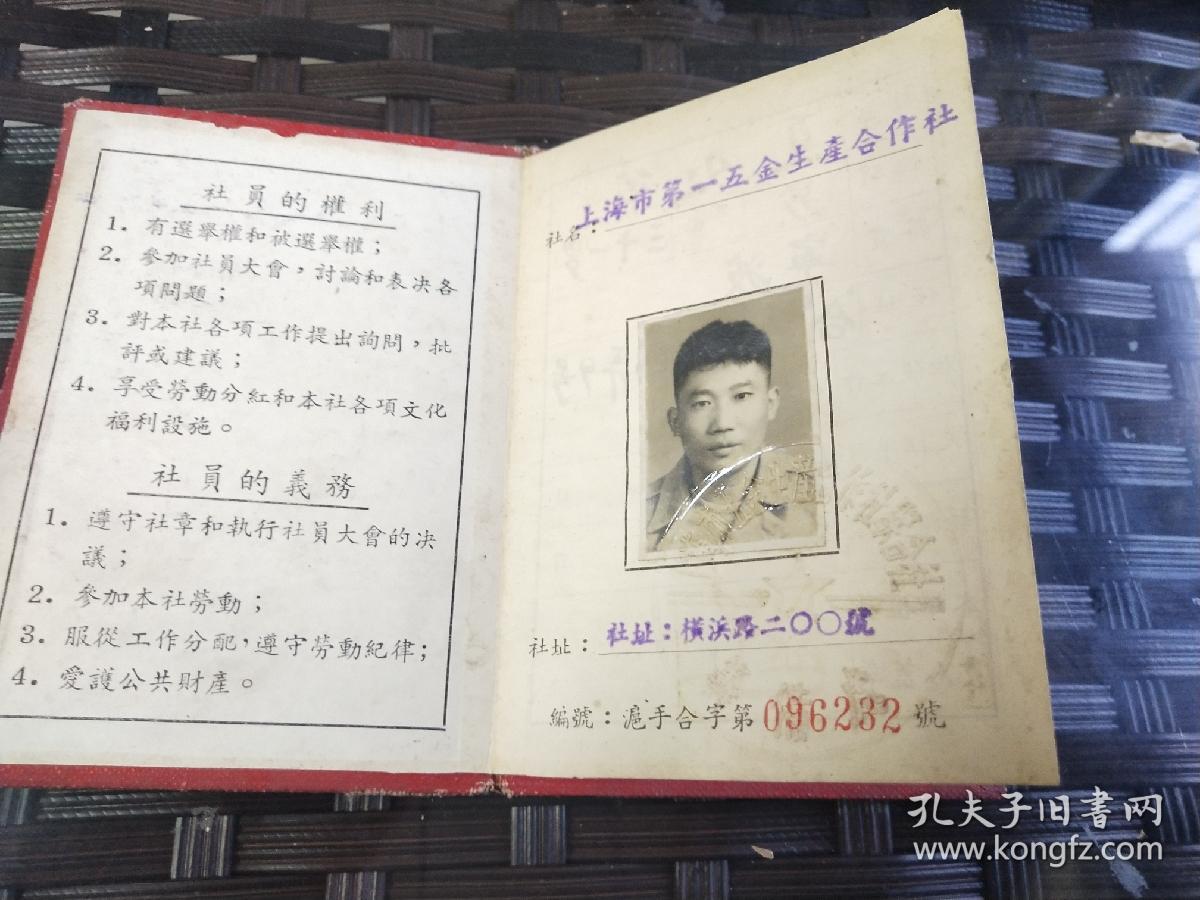 社員的權利
1. 有選舉權和被選舉權；
2. 參加社員大會，討論和表决各
項問題；
3. 對本社各項工作提出詢問，批
評或建議；
4. 享受勞動分紅和本社各項文化
福利設施。
社員的義務
1. 遵守社章和執行社員大會的决
議；
2. 參加本社勞動；
3. 服從工作分配，遵守勞動紀律；
4. 愛護公共財產。
上海市第一五金生產合作社
社名：
社址：社址：橫浜路二〇〇號
編號：滬手合字第096232號
孔夫子旧书网
www.kongfz.com